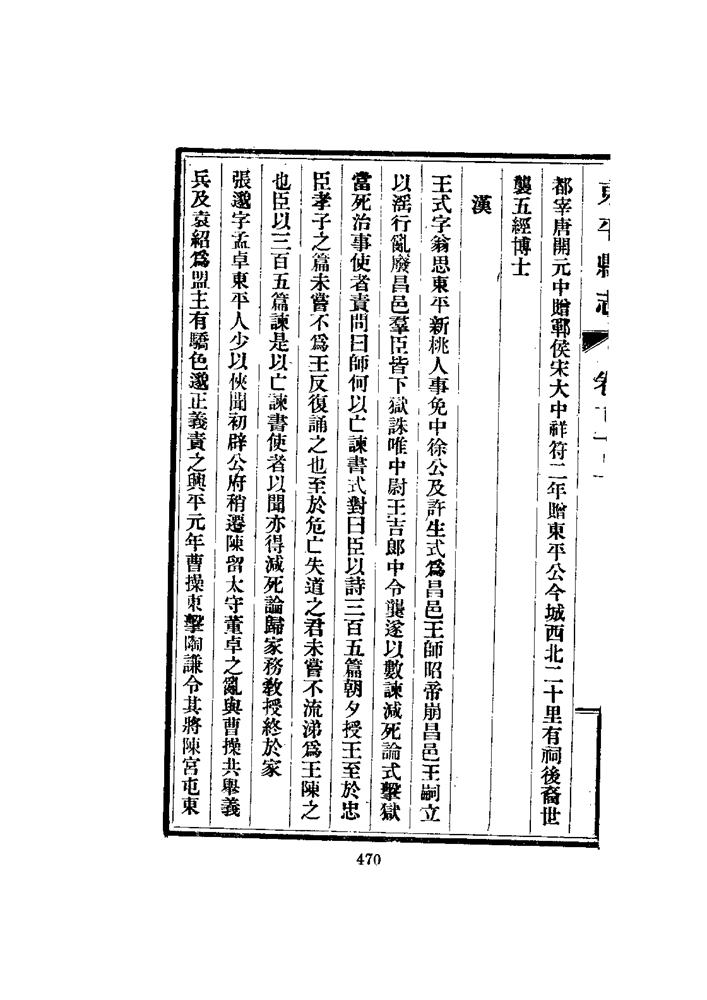 東平縣志 卷
都宰唐開元中贈鄆侯宋大中祥符二年贈東平公今城西北二十里有祠後裔世
襲五經博士
漢
王式字翁思東平新桃人事免中徐公及許生式爲昌邑王師昭帝崩昌邑王嗣立
以淫行亂廢昌邑羣臣皆下獄誅唯中尉王吉郎中令龔遂以數諫減死論式繫獄
當死治事使者責問曰師何以亡諫書式對曰臣以詩三百五篇朝夕授王至於忠
臣孝子之篇未嘗不爲王反復誦之也至於危亡失道之君未嘗不流涕爲王陳之
也臣以三百五篇諫是以亡諫書使者以聞亦得減死論歸家務敎授終於家
張邈字孟卓東平人少以俠聞初辟公府稍遷陳留太守董卓之亂與曹操共舉義
兵及袁紹爲盟主有驕色邈正義責之興平元年曹操東擊陶謙令其將陳宮屯東
470